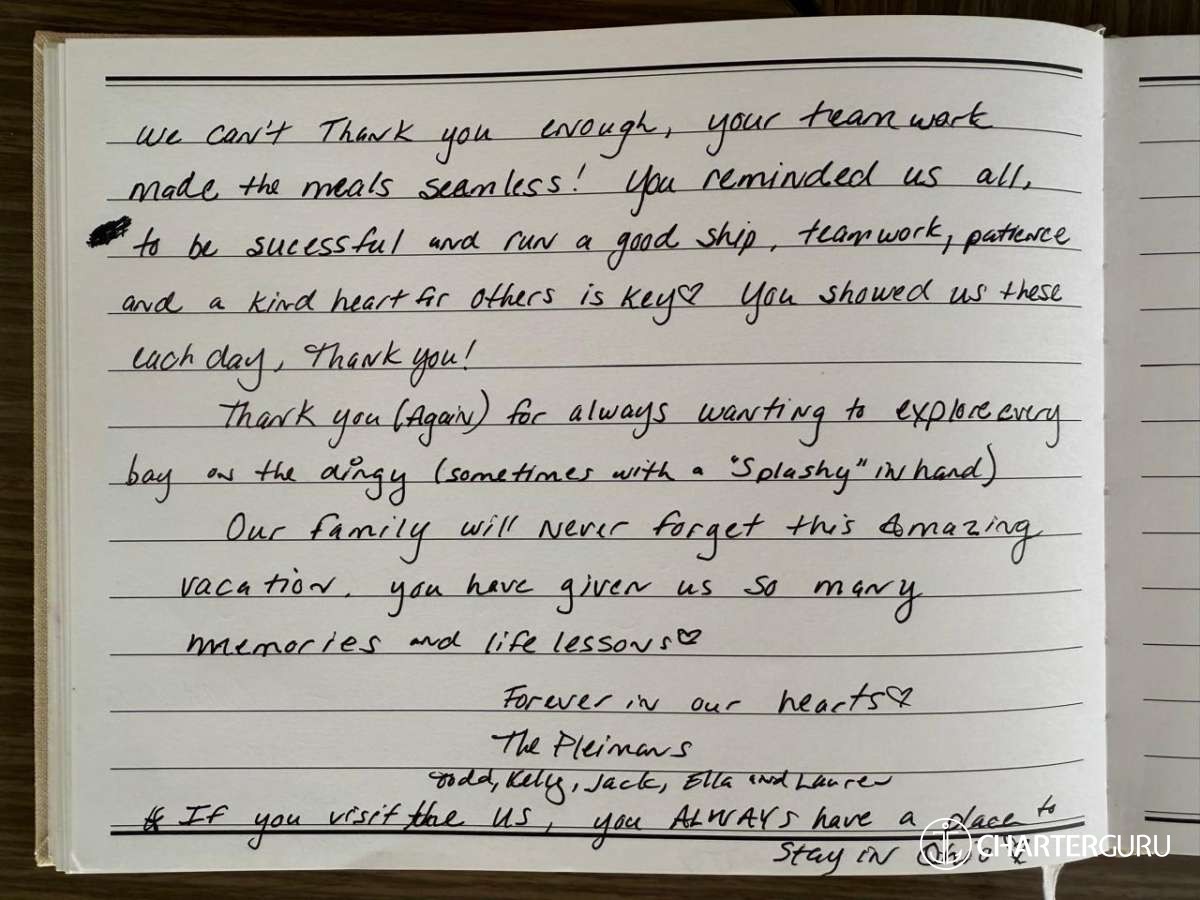 We can't Thank you enough, your team work
made the meals seamless! You reminded us all,
to be sucessful and run a good ship, teamwork, patience
and a kind heart for others is key♡ You showed us these
each day, Thank you!
Thank you (Again) for always wanting to explore every
bay on the dingy (sometimes with a "Splashy" in hand)
Our family will never forget this Amazing
vacation. you have given us so many
memories and life lessons♡
Forever in our hearts♡
The Pleimans
Todd, Kelly, Jack, Ella and Lauren
* If you visit the US, you ALWAYS have a place to
Stay in Ohio *
CHARTERGURU